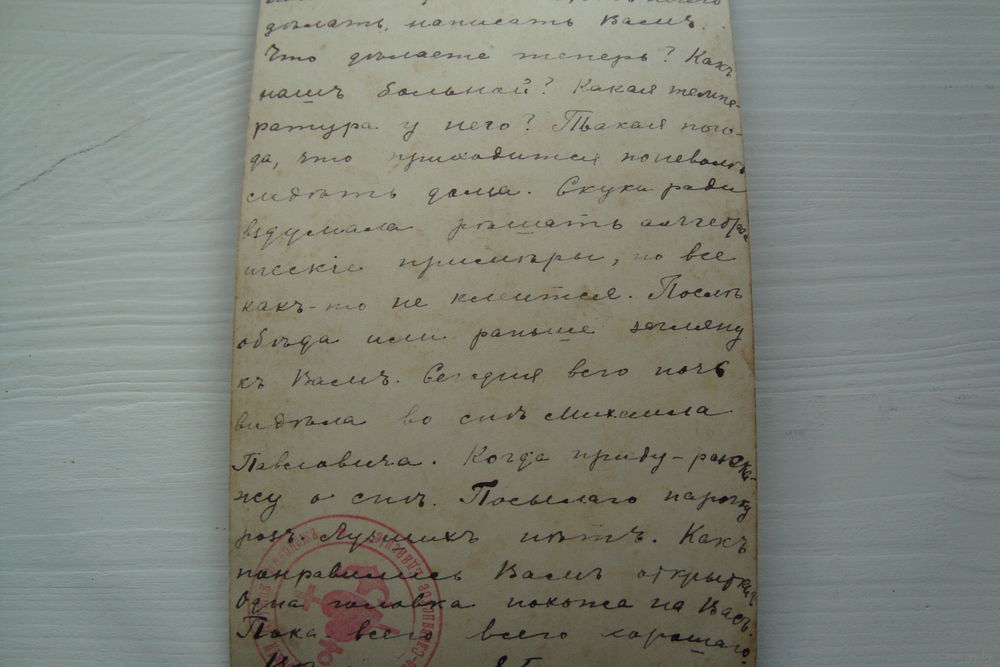 дѣлать, написать Вамъ.
Что дѣлаете теперь? Какъ
нашъ больной? Какая темпе-
ратура у него? Такая пого-
да, что приходится поневолѣ
сидѣть дома. Скуки ради
вздумала рѣшать алгебраи
ческіе примѣры, но все
какъ-то не клеится. Послѣ
обѣда или раньше загляну
къ Вамъ. Сегодня всю ночь
видѣла во снѣ Михаила
Павловича. Когда приду-расска-
жу о снѣ. Посылаю парочку
розъ. Лучшихъ нѣтъ. Какъ
понравились Вамъ открытки
Одна головка похожа на Васъ.
Пока всего всего хорошаго.